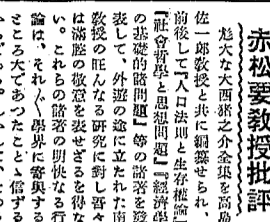 赤松要教授批評
尨大な大西猪之介全集を高島
佐一郎教授と共に編纂せられ
前後して『人口法則と生存權論』
『社會哲學と思想問題』『經濟學
の基礎的諸問題』等の諸著を發
表して、外遊の途に立たれた南
教授の旺んなる研究に對し吾々
は滿腔の敬意を表せざるを得な
い。これらの諸著の明快なる行
論は、それ〲學界に寄與する
ところ大であつたことゝ信ずる